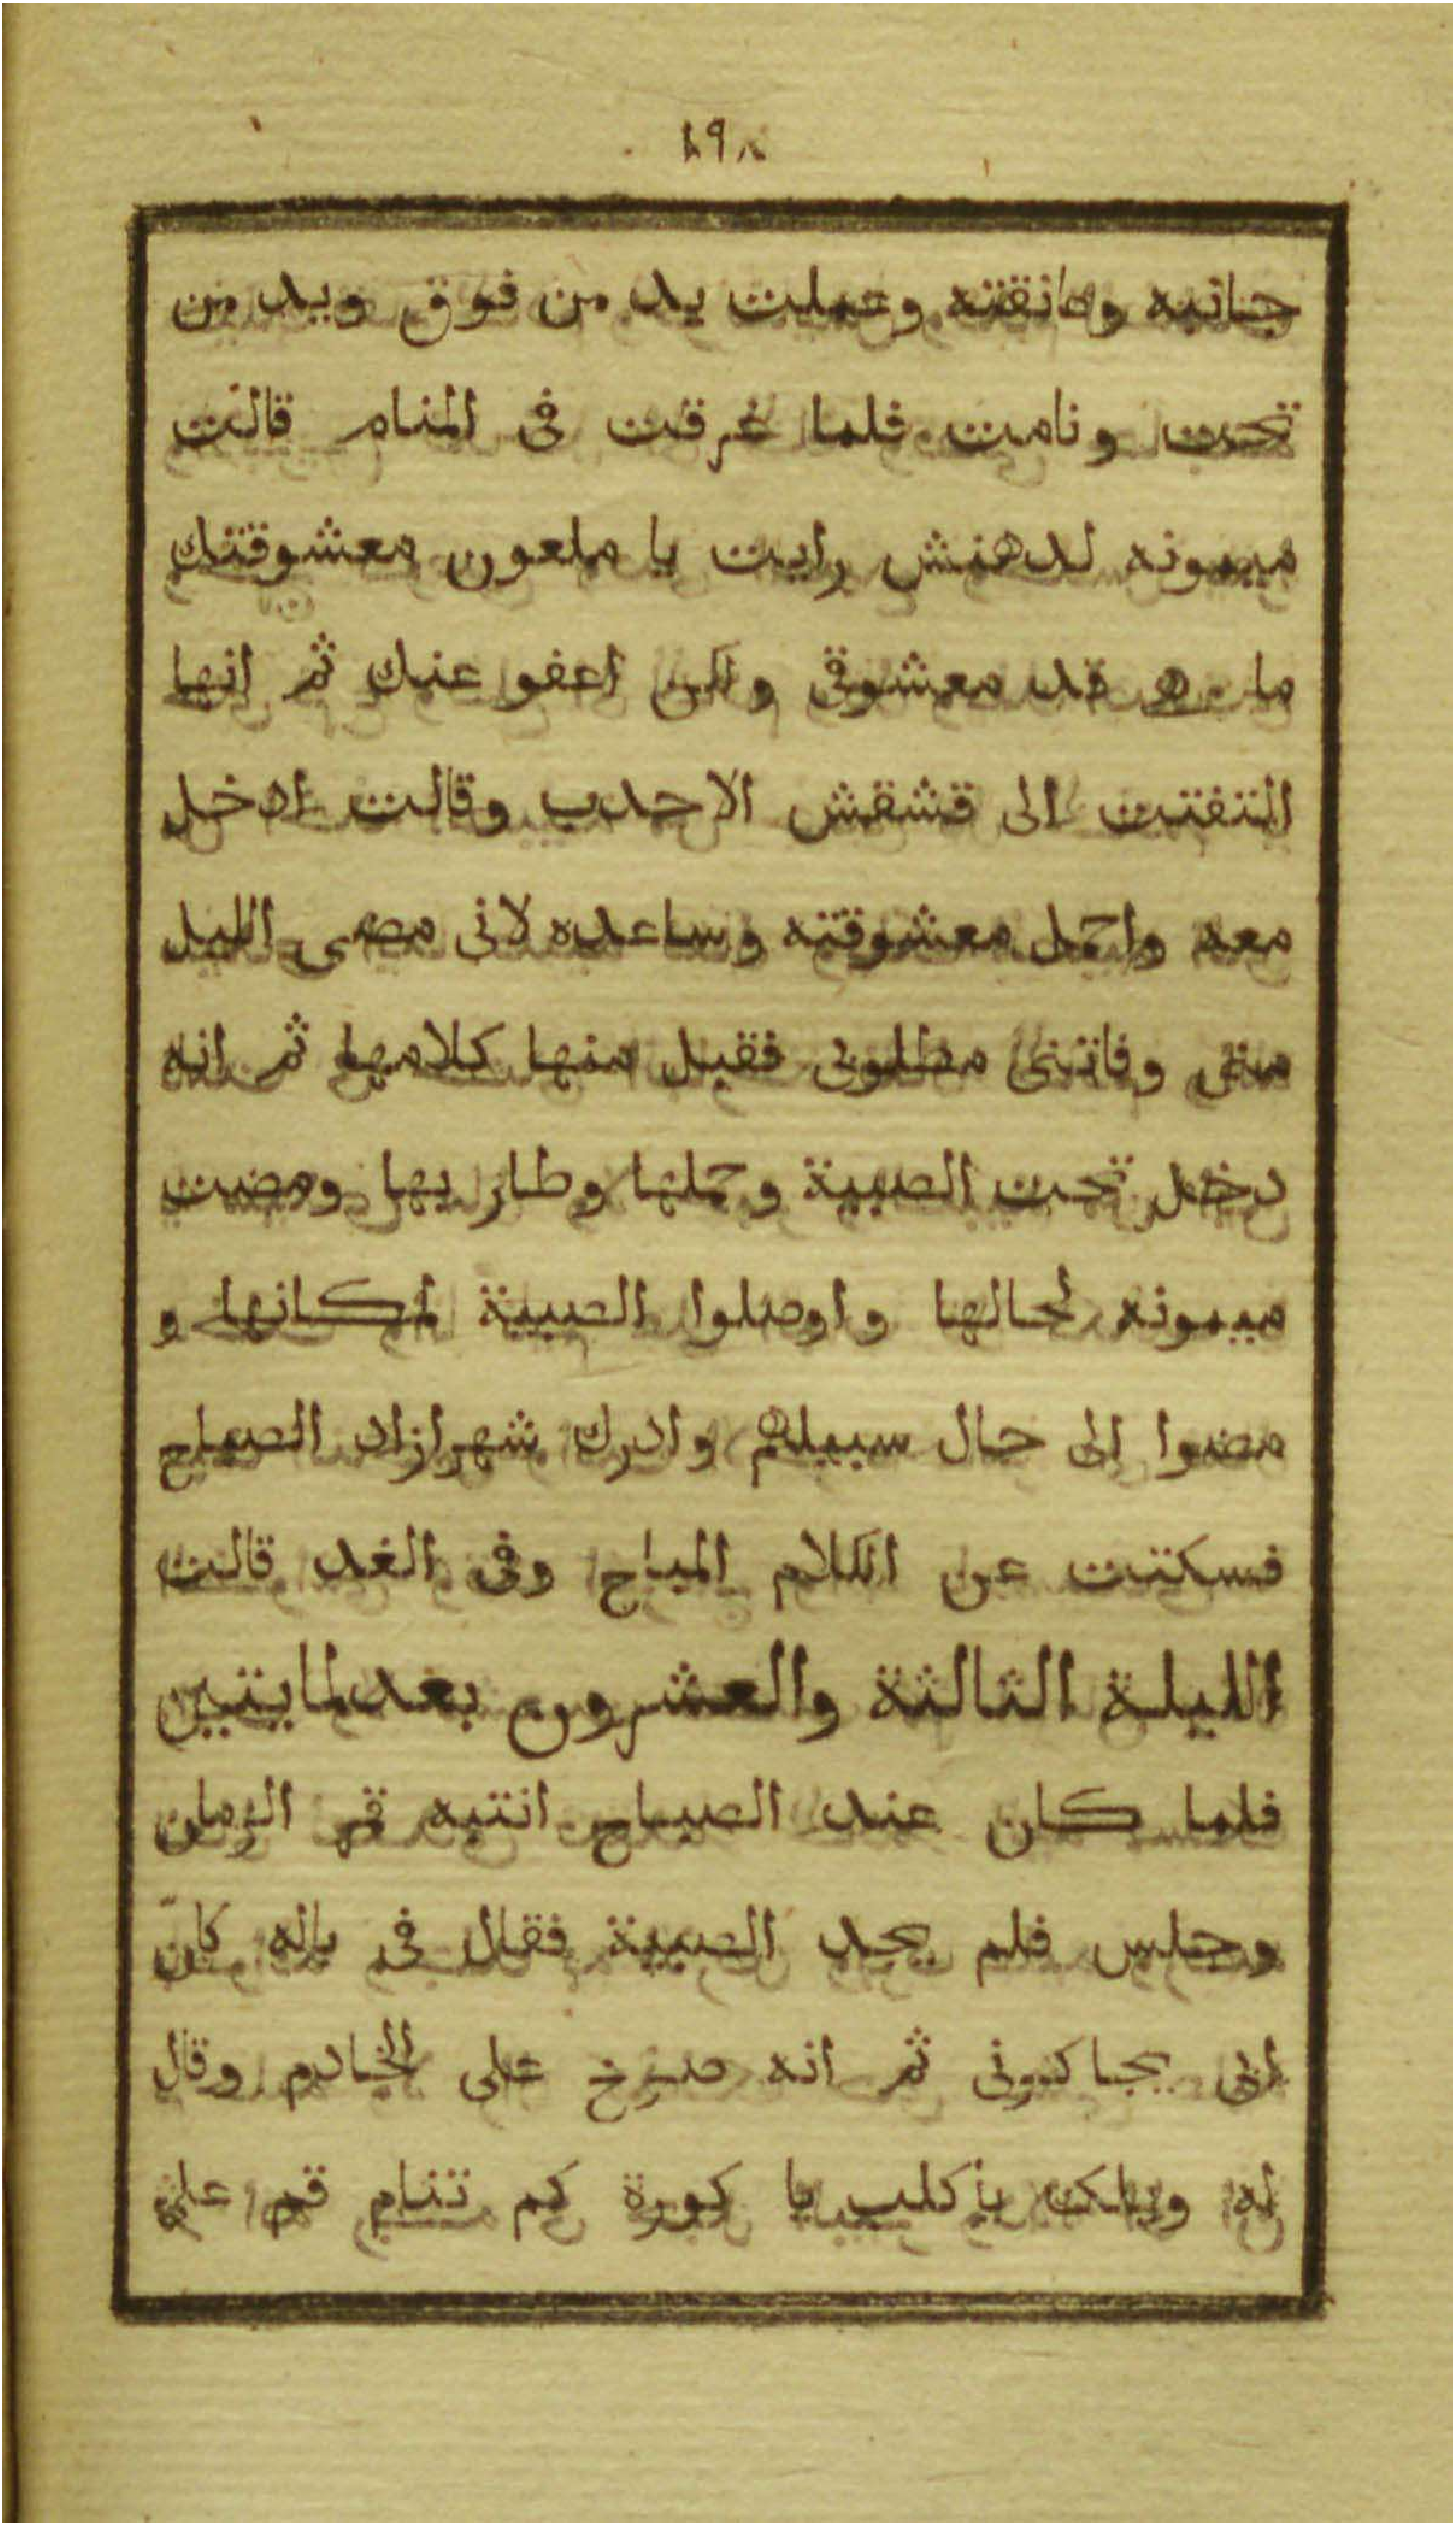 ١٩٨
جانبه وعانقته وعملت يد من فوق ويد من
تحت ونامت فلما غرقت فى المنام قالت
ميمونه لدهنش رايت يا ملعون معشوقتك
ما هى قد معشوقى ولكن اعفو عنك ثم انها
التفتت الى قشقش الاحدب وقالت ادخل
معه واحمل معشوقته وساعده لانى مضى الليل
منى وفاتنى مطلوبى فقبل منها كلامها ثم انه
دخل تحت الصبية وحملها وطار بها ومضت
ميمونه لحالها واوصلوا الصبية لمكانها و
مضوا الى حال سبيلهم وادرك شهرازاد الصباح
فسكتت عن الكلام المباح وفى الغد قالت
الليلة الثالثة والعشرون بعد لمايتين
فلما كان عند الصباح انتبه قمر الزمان
وجلس فلم يجد الصبية فقال فى باله كان
ابى يحاكونى ثم انه صرخ على الخادم وقال
له ويلك يا كلب يا كورة كم تنام قم على